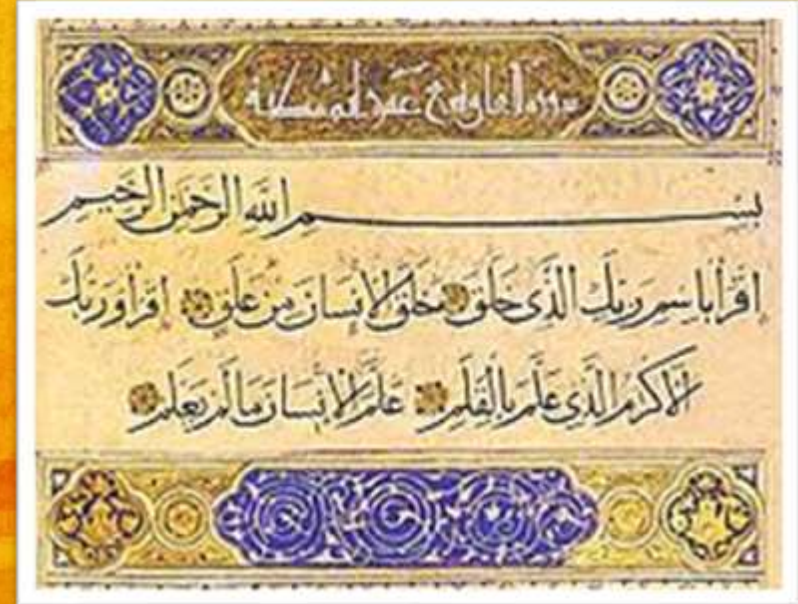 سورة مكية
بسم الله الرحمن الرحيم
اقرأ باسم ربك الذى خلق خلق الإنسان من علق اقرأ وربك
الأكرم الذى علم بالقلم علم الإنسان ما لم يعلم